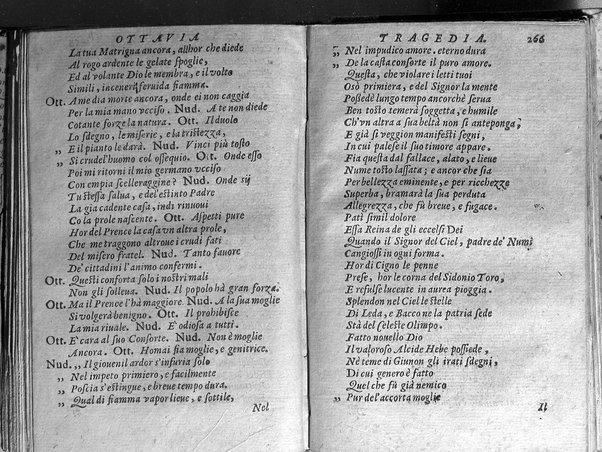 OTTAVIA
La tua Matrigna ancora, allhor che diede
Al rogo ardente le gelate spoglie,
Ed al volante Dio le membra, e il volto
Simili, inceneri feruida fiamma.
Ott. A me dia morte ancora, onde ei non caggia
Per la mia mano vcciso. Nud. A te non diede
Cotante forze la natura. Ott. Il duolo
Lo sdegno, le miserie, e la tristezza,
„ E il pianto le darà. Nud. Vinci più tosto
„ Si crudel'huomo col ossequio. Ott. Onde esso
Poi mi ritorni il mio germano vcciso
Con empia scelleraggine? Nud. Onde sij
Tu stessa salua, e del'estinto Padre
La gia cadente casa, indi rinuoui
Co la prole nascente. Ott. Aspetti pure
Hor del Prence la casa vn altra prole,
Che me traggono altroue i crudi fati
Del misero fratel. Nud. Tanto fauore
De' cittadini l'animo confermi.
Ott. Questi conforta solo i nostri mali
Non gli solleua. Nud. Il popolo hà gran forza.
Ott. Ma il Prence l'hà maggiore. Nud. A la sua moglie
Si volgerà benigno. Ott. Il prohibisce
La mia riuale. Nud. E' odiosa a tutti.
Ott. E' cara al suo Consorte. Nud. Non è moglie
Ancora. Ott. Homai fia moglie, e genitrice.
Nud. „ Il giouenil ardor s'infuria solo
„ Nel impeto primiero, e facilmente
„ Poscia s'estingue, e breue tempo dura.
„ Qual di fiamma vapor lieue, e sottile,
Nel
TRAGEDIA. 266
„ Nel impudico amore. eterno dura
„ De la casta consorte il puro amore.
Questa, che violare i letti tuoi
Osò primiera, e del Signor la mente
Possedè lungo tempo ancorchè serua
Ben tosto temerà soggetta, e humile
Ch'vn altra a sua beltà non si anteponga;
E già si veggion manifesti segni,
In cui palese il suo timore appare.
Fia questa dal fallace, alato, e lieue
Nume tosto lassata; e ancor che sia
Per bellezza eminente, e per ricchezze
Superba, bramarà la sua perduta
Allegrezza, che fù breue, e fugace.
Patì simil dolore
Essa Reina de gli eccelsi Dei
Quando il Signor del Ciel, padre de' Numi
Cangiossi in ogni forma.
Hor di Cigno le penne
Prese, hor le corna del Sidonio Toro,
E refulse lucente in aurea pioggia.
Splendon nel Ciel le stelle
Di Leda, e Bacco ne la patria sede
Stà del celeste Olimpo.
Fatto nouello Dio
Il valoroso Alcide Hebe possiede,
Nè teme di Giunon gli irati sdegni,
Di cui genero è fatto
Quel che fù già nemico
„ Pur de l'accorta moglie
Il